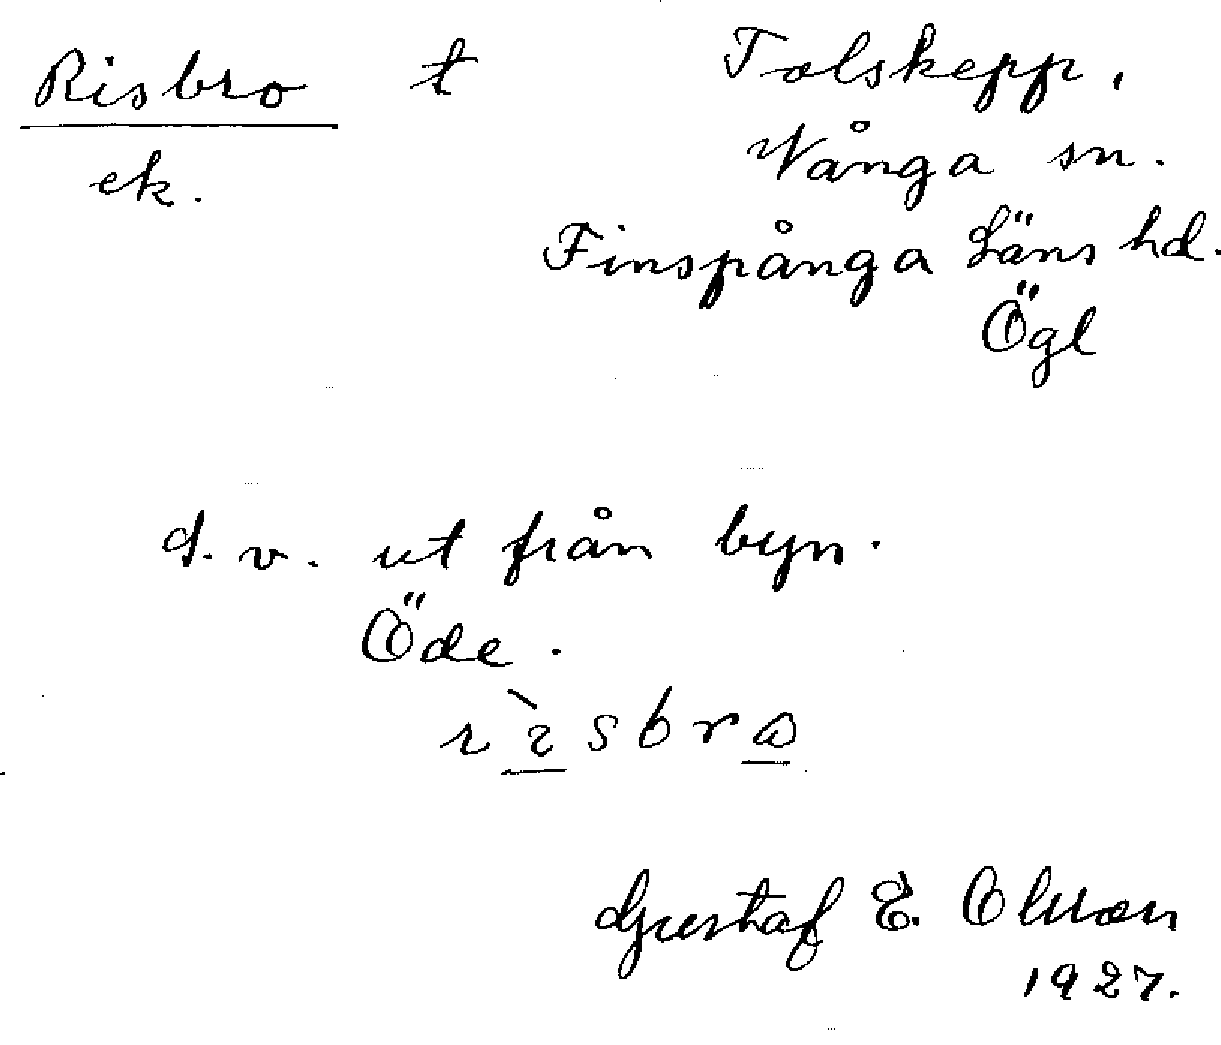 Risbro t Tolskepp,
ek. Vånga sn.
Finspånga Läns hd.
Ögl
d. v. ut från byn.
Öde.
rìsbro
Gustaf E. Olsson
1927.